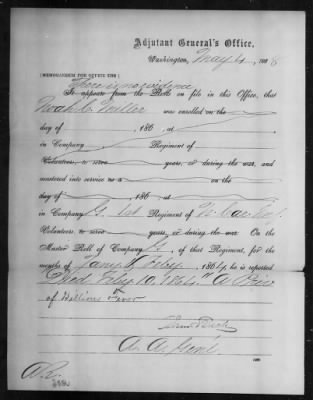 Adjutant General's Office,
Washington, May 4, 1868
[MEMORANDUM FOR OFFICE USE.]
There is no evidence
It appears from the Roll on file in this Office, that
Noah C. Miller was enrolled on the
day of , 186 , at
in Company Regiment of
Volunteers, to serve years, or during the war, and
mustered into service as a on the
day of , 186 , at
in Company G, 1st Regiment of N. Car. Inf.
Volunteers, to serve years, or during the war. On the
Muster Roll of Company G, of that Regiment, for the
months of Jany & Feby, 1864, he is reported
"Died Feby 10, 1864"
of Billious Fever
A. A. Genl.